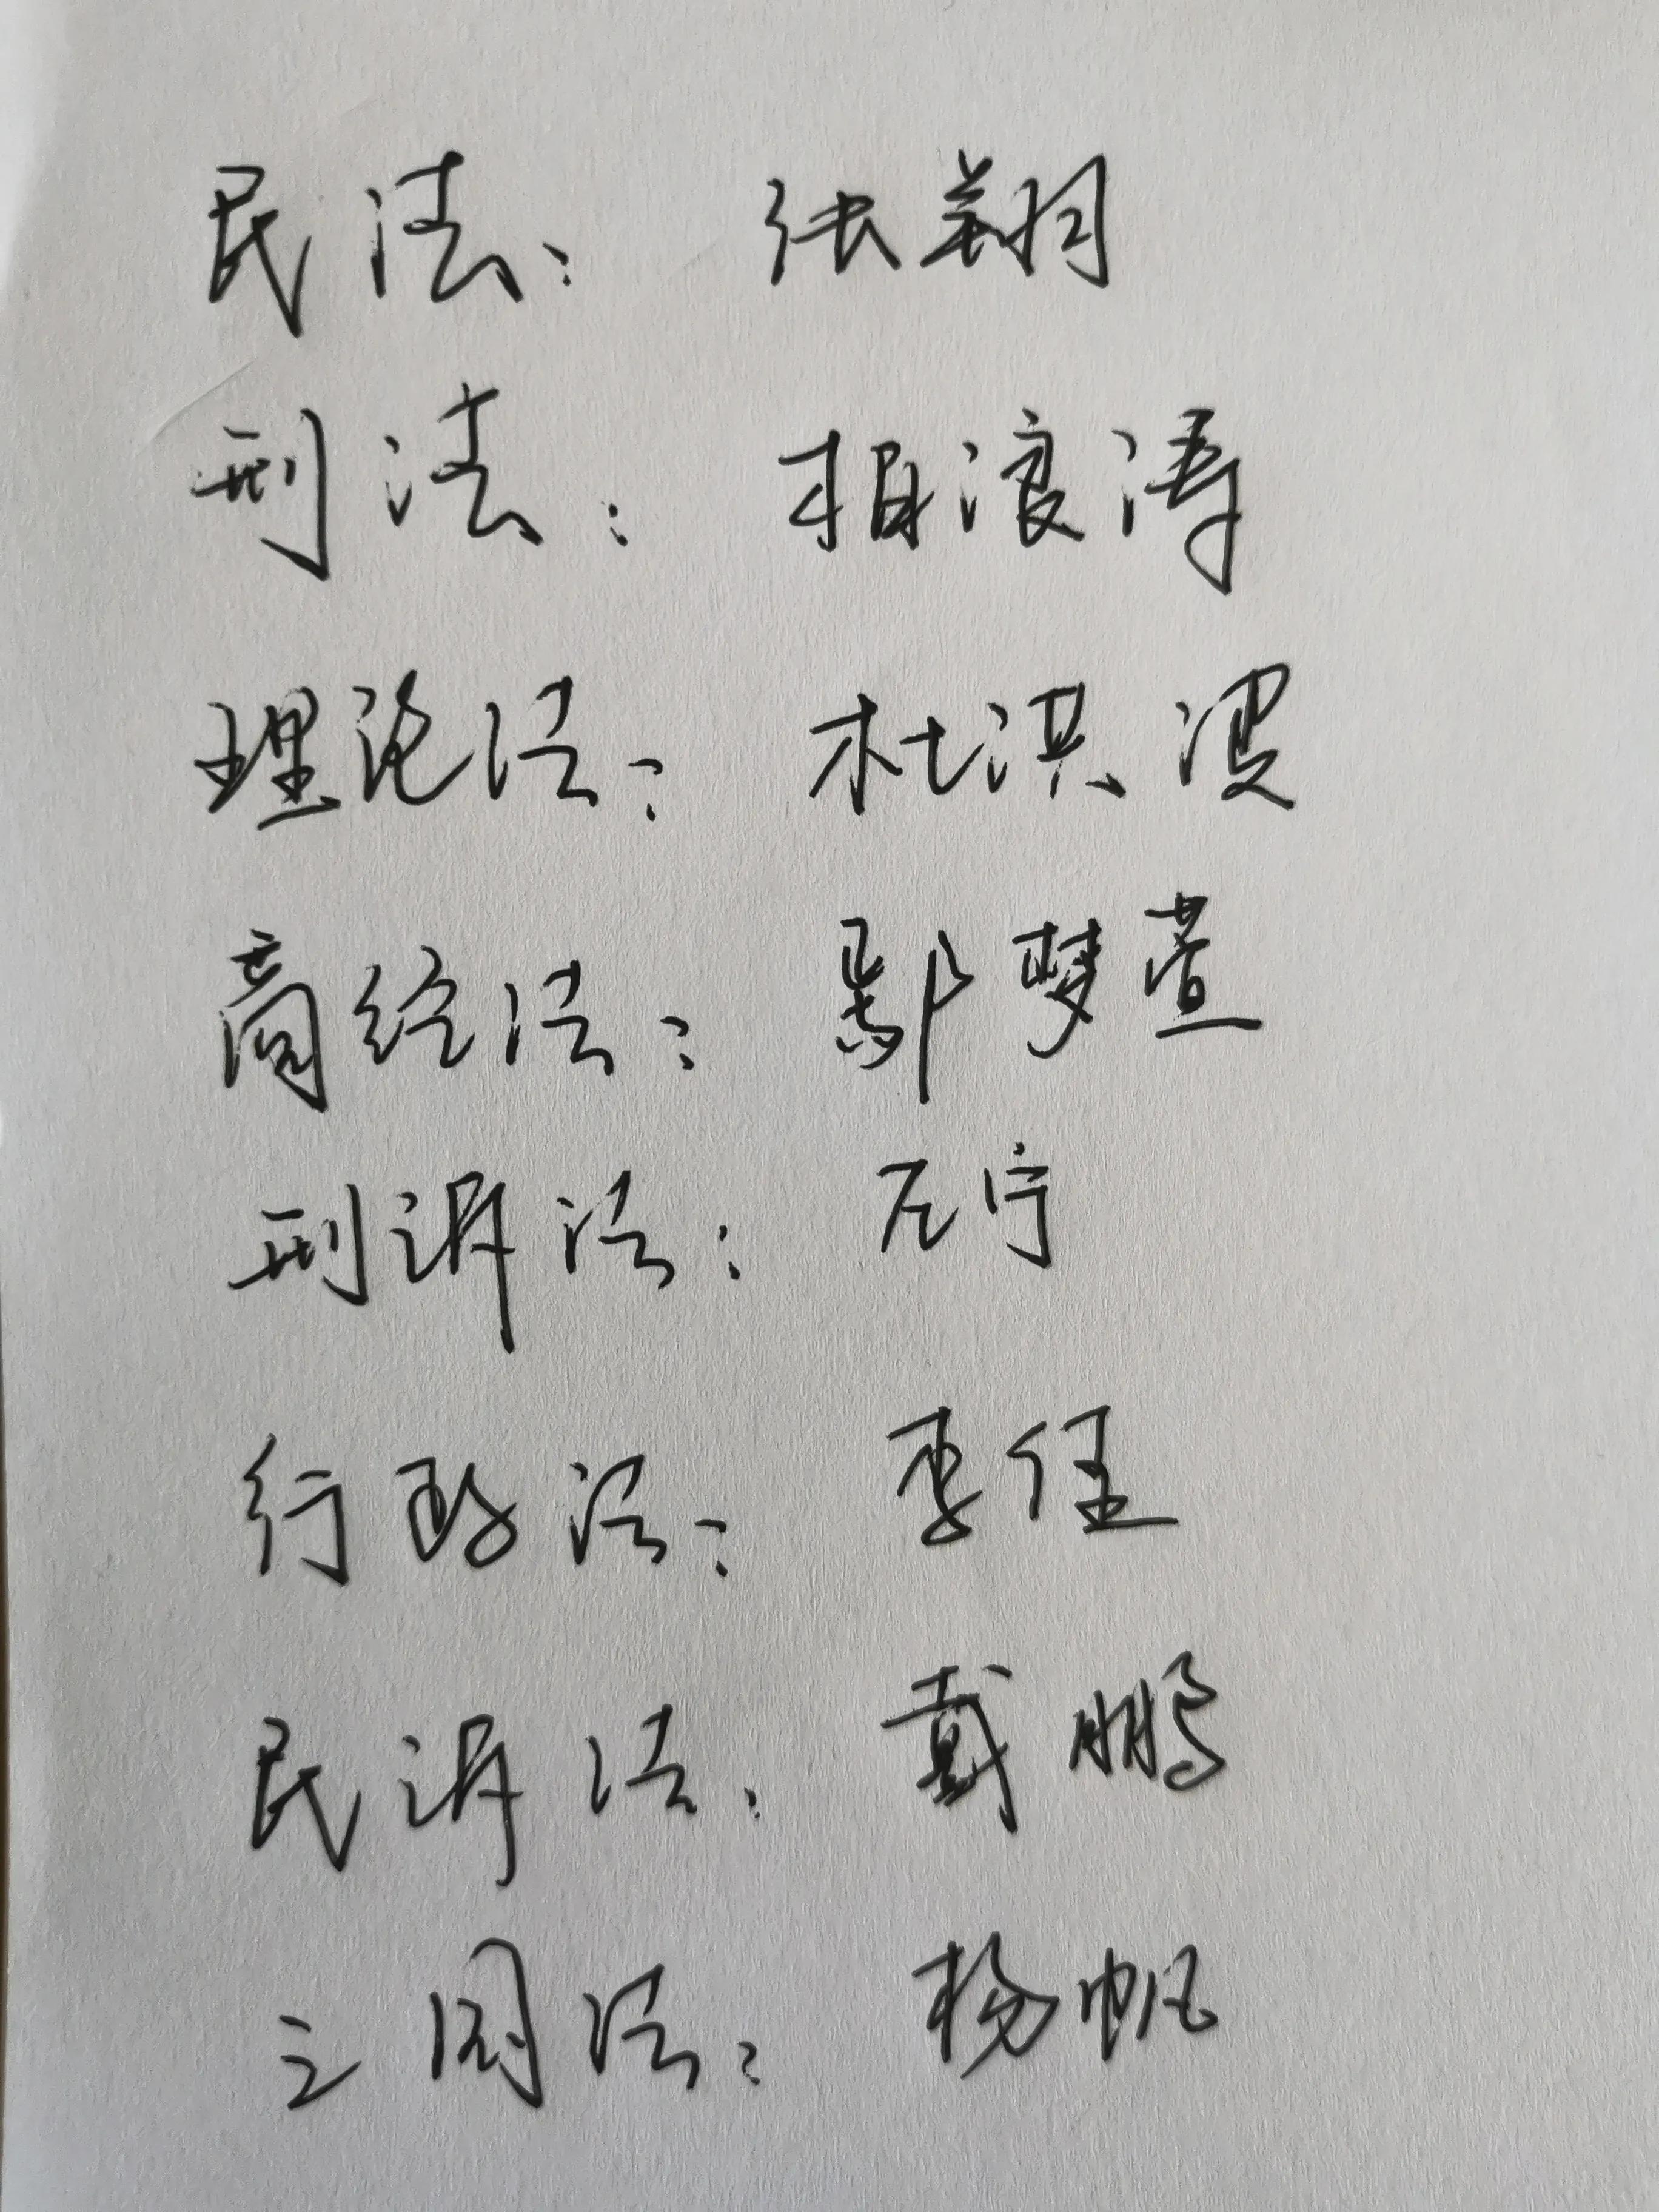 民法：张翔
刑法：柏浪涛
理论法：杜洪波
商经法：鄢梦萱
刑诉法：左宁
行政法：李佳
民诉法：戴鹏
三国法：杨帆